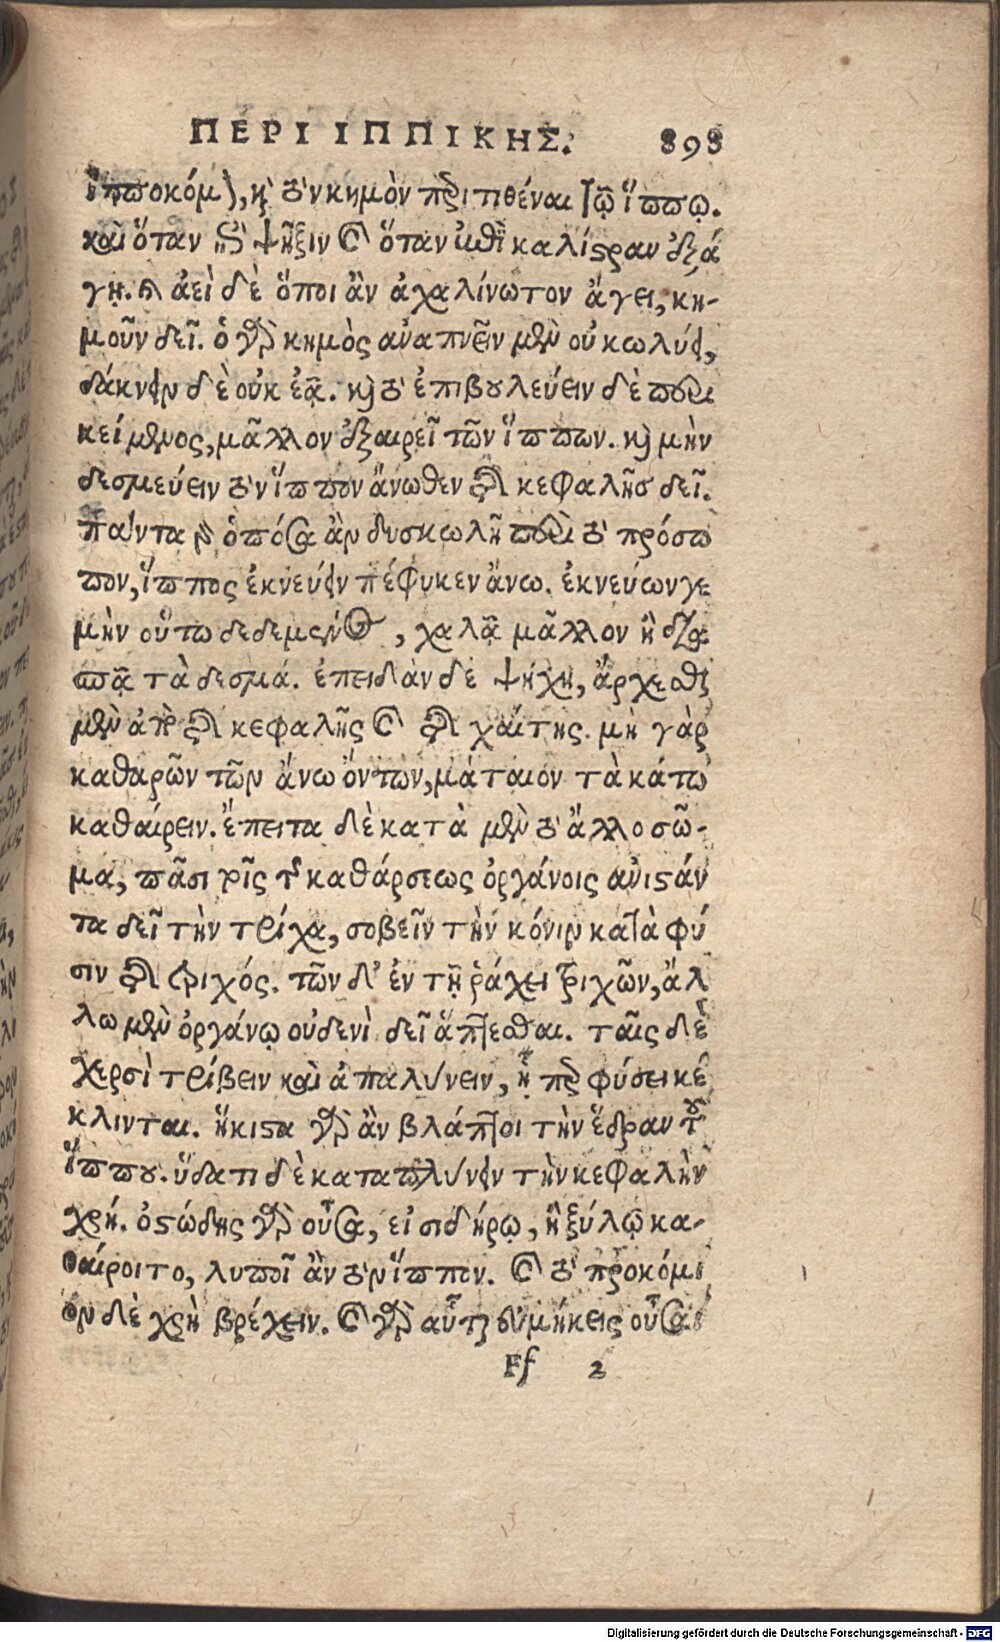 ΠΕΡΙ ΙΠΠΙΚΗΣ. 898
ἱπποκόμον, καὶ τὸν κημὸν περιτιθέναι τῷ ἵππῳ.
καὶ ὅταν ἐπὶ ψῆξιν καὶ ὅταν ἐπὶ καλίστραν ἐξά
γῃ. καὶ ἀεὶ δὲ ὅποι ἂν ἀχαλίνωτον ἄγει, κη-
μοῦν δεῖ. ὁ γὰρ κημὸς ἀναπνεῖν μὲν οὐ κωλύει,
δάκνειν δὲ οὐκ ἐᾷ. καὶ τὸ ἐπιβουλεύειν δὲ περι
κείμενος, μᾶλλον ἐξαιρεῖ τῶν ἵππων. καὶ μὴν
δεσμεύειν τὸν ἵππον ἄνωθεν τῆς κεφαλῆς δεῖ.
πάντα γὰρ ὁπόσα ἂν δυσκωλῇ περὶ τὸ πρόσω
πον, ἵππος ἐκνεύειν πέφυκεν ἄνω. ἐκνεύων γε
μὴν οὕτω δεδεμένος, χαλᾷ μᾶλλον ἢ δια
σπᾷ τὰ δεσμά. ἐπειδὰν δὲ ψήχῃ, ἄρχεσθαι
μὲν ἀπὸ τῆς κεφαλῆς καὶ τῆς χαίτης. μὴ γὰρ
καθαρῶν τῶν ἄνω ὄντων, μάταιον τὰ κάτω
καθαίρειν. ἔπειτα δὲ κατὰ μὲν τὸ ἄλλο σῶ-
μα, πᾶσι τοῖς τῆς καθάρσεως ὀργάνοις ἀνιστάν
τα δεῖ τὴν τρίχα, σοβεῖν τὴν κόνιν κατὰ φύ
σιν τῆς τριχός. τῶν δ' ἐν τῇ ῥάχει τριχῶν, ἄλ
λω μὲν ὀργάνῳ οὐδενὶ δεῖ ἅπτεσθαι. ταῖς δὲ
χερσὶ τρίβειν καὶ ἁπαλύνειν, ᾗπερ φύσει κέ
κλινται. ἥκιστα γὰρ ἂν βλάπτοι τὴν ἕδραν τοῦ
ἵππου. ὕδατι δὲ καταπλύνειν τὴν κεφαλὴν
χρή. ὀστώδης γὰρ οὖσα, εἰ σιδήρῳ, ἢ ξύλῳ κα-
θαίροιτο, λυποῖ ἂν τὸν ἵππον. καὶ τὸ προκόμι
ον δὲ χρὴ βρέχειν. καὶ γὰρ αὗται εὐμήκεις οὖσαι
Ff 2
Digitalisierung gefördert durch die Deutsche Forschungsgemeinschaft - DFG